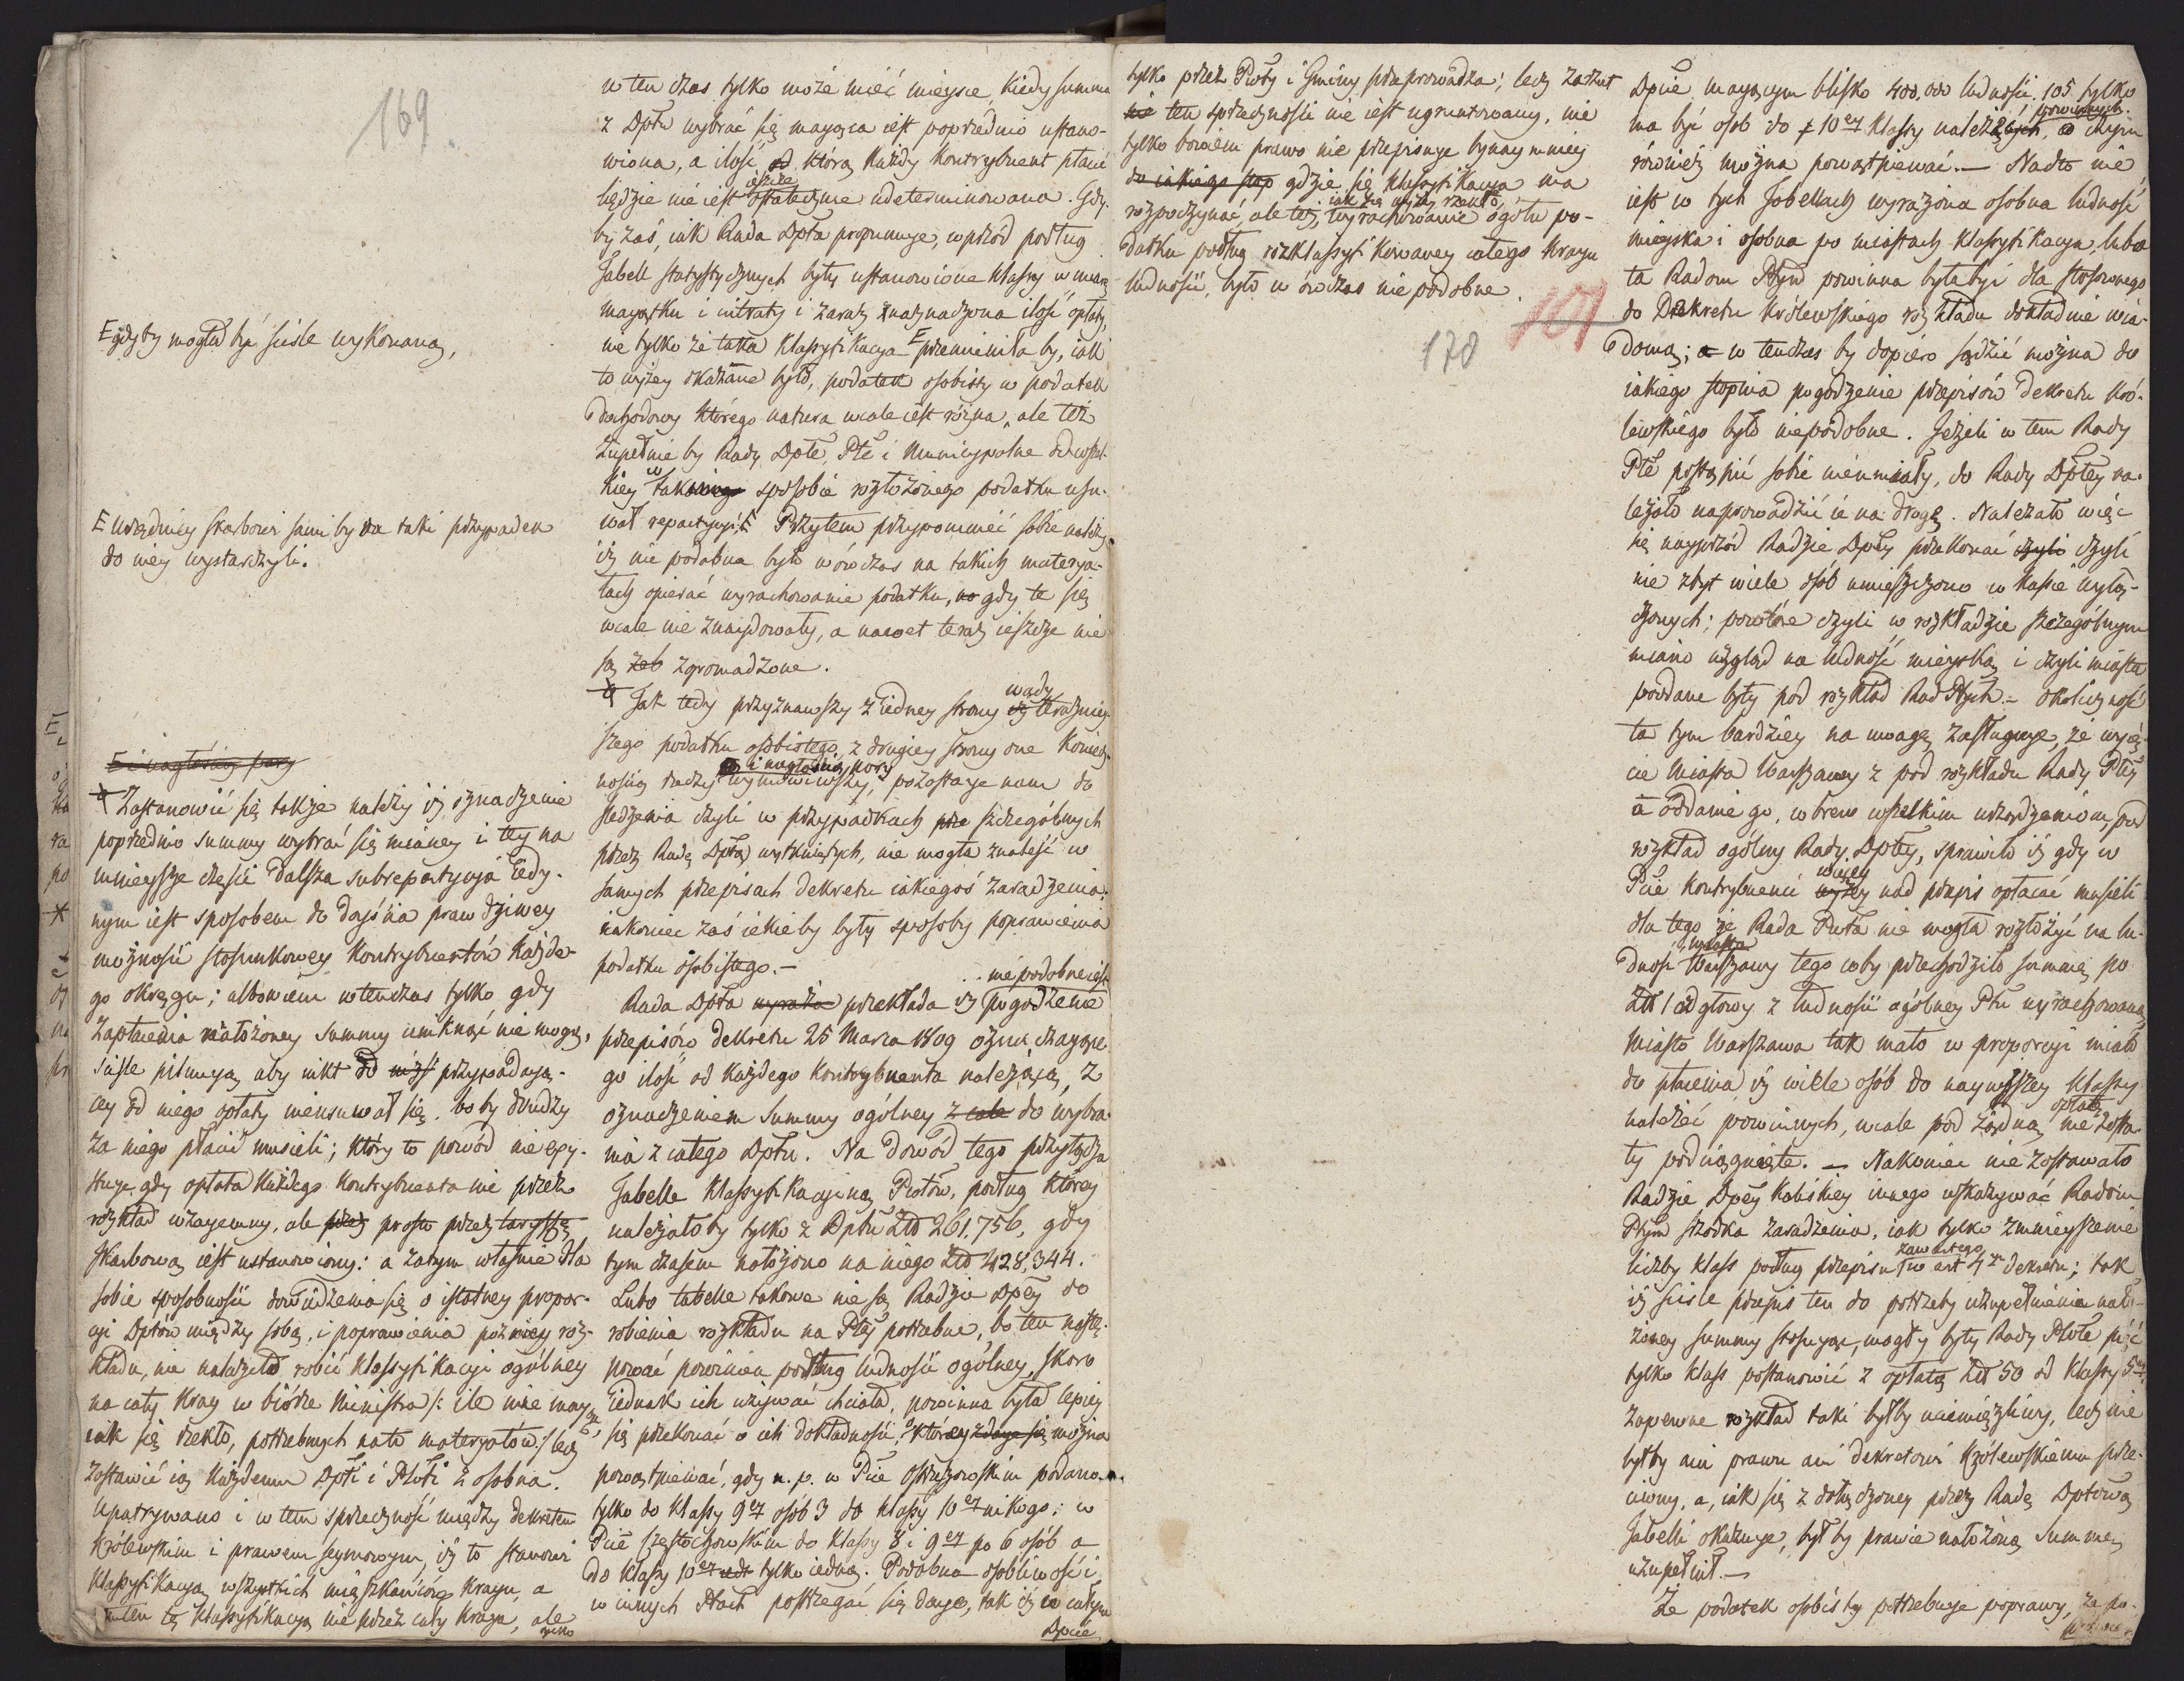 169.
w ten czas tylko może mieć mieysce, kiedy summa
z Dptu wybrać się mająca iest poprzednio ustano-
wiona, a ilość od którą każdy kontrybuent płacić
będzie nie iest ieszcze ostatecznie udeterminowana. Gdy-
by zaś, iak Rada Dpta proponuje, wprzód podług
Tabell statystycznych były ustanowione klassy w miarę
maiątku i intraty i zaraz naznaczona ilość opłaty,
nie tylko że taka klassyfikacya E przemieniłaby, iak
to wyżey okazane było, podatek osobisty w podatek
dochodowy którego natura wcale iest różna, ale też
zupełnie by Rady Dptłe, Ptłe i Municypalne od wszel-
kiey w takowego sposobie rozłożonego podatku usu-
wał repartycyi. E Przytem przypomnieć sobie należy
iż nie podobna było wówczas na takich materya-
łach opierać wyrachowanie podatku, gdy te się
wcale nie znaydowały, a nawet teraz ieszcze nie
są zeb zgromadzone.
Tak tedy przyznawszy z iedney strony wady terażniey-
szego podatku osobistego, z drugiey strony one koniecz-
nością rzeczy i nagłością pory wymówiwszy, pozostaje nam do
śledzenia czyli w przypadkach szczególnych
przez Radę Dptą wytkniętych, nie mogła znaleść w
samych przepisach dekretu iakiegoś zaradzenia:
nakoniec zaś iakieby były sposoby poprawienia
podatku osobistego.-
Rada Dpta wyraża przekłada iż nie podobne iest pogodzenie
przepisów dekretu 25 Marca 1809 oznaczające-
go ilość od każdego kontrybuenta należącą, z
oznaczeniem summy ogólney z cale do wybra-
nia z całego Dptu. Na dowód tego przyłącza
Tabelle klassyfikacyiną Ptów, podług którey
należałoby tylko z Dptu Złt 261.756, gdy
tym czasem nałożono na niego Złt 428,344.
Lubo tabelle takowe nie są Radzie Dptey do
robienia rozkładu na Ptty potrzebne, bo ten nastę-
pować powinien podług ludności ogólney, skoro
iednak ich używać chciała, powinna była lepiey
się przekonać o ich dokładności, o którey zdaje się można
powątpiewać, gdy n. p. w Pcie Ostrzeszowskim podano
tylko do klassy 9ey osób 3 do klassy 10ey nikogo; w
Pcie Częstochowskim do klassy 8 i 9ey po 6 osób a
do klassy 10ey tylko iedną. Podobna osobliwość i
w innych Ptach postrzegać się daje, tak iż w całym
Dpcie
E gdyby mogła być ściśle wykonaną,
E urzędnicy skarbowi sami by na taki przypadek
do niey wystarczyli.
E i nagłością pory
Zastanowić się także należy iż oznaczenie
poprzednio summy wybrać się mianey i tey na
mnieysze części dalsza subrepartycyja iedy-
nym iest sposobem do dojścia prawdziwey
możności stosunkowey kontrybuentów każde-
go okręgu; albowiem wtenczas tylko gdy
zapłacenia nałożoney summy uniknąć nie mogą,
ściśle pilnują, aby nikt od przypadają-
cey od niego opłaty nieusuwał się, bo by drudzy
za niego płacić musieli; który to powód nie egzy-
stuje, gdy opłata każdego kontrybuenta nie przez
rozkład wzajemny, ale przez prosto przez taryffę
skarbową iest ustanowiony: a zatym właśnie dla
sobie sposobności dowiedzenia się o istotney propor-
cyi Dptów między sobą, i poprawienia późniey roz-
kładu, nie należało robić klassyfikacyi ogólney
na cały kray w biórze Ministra /: ile nie mając,
iak się rzekło, potrzebnych nato materyałów:/ lecz
zostawić ią każdemu Dptł i Ptłi z osobna.
Upatrywano i w tem sprzeczność między dekretem
Królewskim i prawem seymowym, iż to stanowi
klassyfikacyą wszystkich mięszkańców kraju, a
tę klassyfikacyą nie przez cały kraju, ale
tylko
tylko przez Pwty i Gminy przeprowadza; lecz zarzut
nie ten sprzeczności nie iest ugruntowany, nie
tylko bowiem prawo nie przepisuje bynaymniey
do iakiego stop gdzie się klassyfikacya ma
rozpoczynać, ale też, iak się wyżey rzekło, wyrachowanie ogółu po-
datku podług rozklassyfikowaney całego kraju
ludności, było w ówczas nie podobne.
101
170
Dpcie mającym blisko 400,000 ludności, 105 tylko
ma być osób do 10ey klassy należeć powinnych, o czym
również można powątpiewać.- Nadto nie
iest w tych Tabellach wyrażona osobna ludność
mieyska i osobna po miastach klassyfikacya, lubo
ta Radom Ptym powinna była być dla stosownego
do Dekretu Królewskiego rozkładu dokładnie wia-
domą; a w tenczas by dopiéro sądzić można do
iakiego stopnia pogodzenie przepisów dekretu Kró-
lewskiego było niepodobne. Jeżeli w tem Rady
Ptłe postąpić sobie nieumiały, do Rady Dptey na-
leżało naprowadzić ie na drogę. Należało więc
się nayprzód Radzie Dptey przekonać czyli czyli
nie zbyt wiele osób umieszczono w klassie wyłą-
czonych; powtóre czyli w rozkładzie szczególnym
miano wzgląd na ludność mieyską i czyli miasta
poddane były pod rozkład Rad Ptych.- okoliczność
ta tym bardziey na uwagę zasługuje, że wyię-
cie Miasta Warszawy z pod rozkładu Rady Ptey
a oddanie go, wbrew wszelkim urządzeniom, pod
rozkład ogólny Rady Dptey, sprawiło iż gdy w
Pcie kontrybuenci więcey nad przepis opłacać musieli
dla tego że Rada Pwta nie mogła rozłożyć na lu-
dność miasta Warszawy tego coby przechodziło summę po
Złt 1 od głowy z ludności ogólney Ptu wyrachowaną
Miasto Warszawa tak mało w proporcyi miało
do płacenia iż wiele osób do naywyższey klassy
należeć powinnych, wcale pod żadną opłatę nie zosta-
ły podciągnięte. - Nakoniec nie zostawało
Radzie Dptey Kaliskiey innego wskazywać Radom
Ptym środka zaradzenia, iak tylko zmnieyszenie
liczby klass podług przepisu zawartego w art 4m dekretu; tak
iż ściśle przepis ten do potrzeby uzupełnienia nało-
żoney summy stosując, mogły były Rady Ptłe pięć
tylko klass postanowić z opłatą Złt 50 od klassy 5ey.
Zapewne rozkład taki byłby uciemiężliwy, lecz nie
byłby ani prawu ani dekretowi Królewskiemu prze-
ciwny, a, iak się z dołączoney przez Radę Dptową
Tabelli okazuje, byłby prawie nałożoną summę
uzupełnił.-
Że podatek osobisty potrzebuje poprawy, za po-